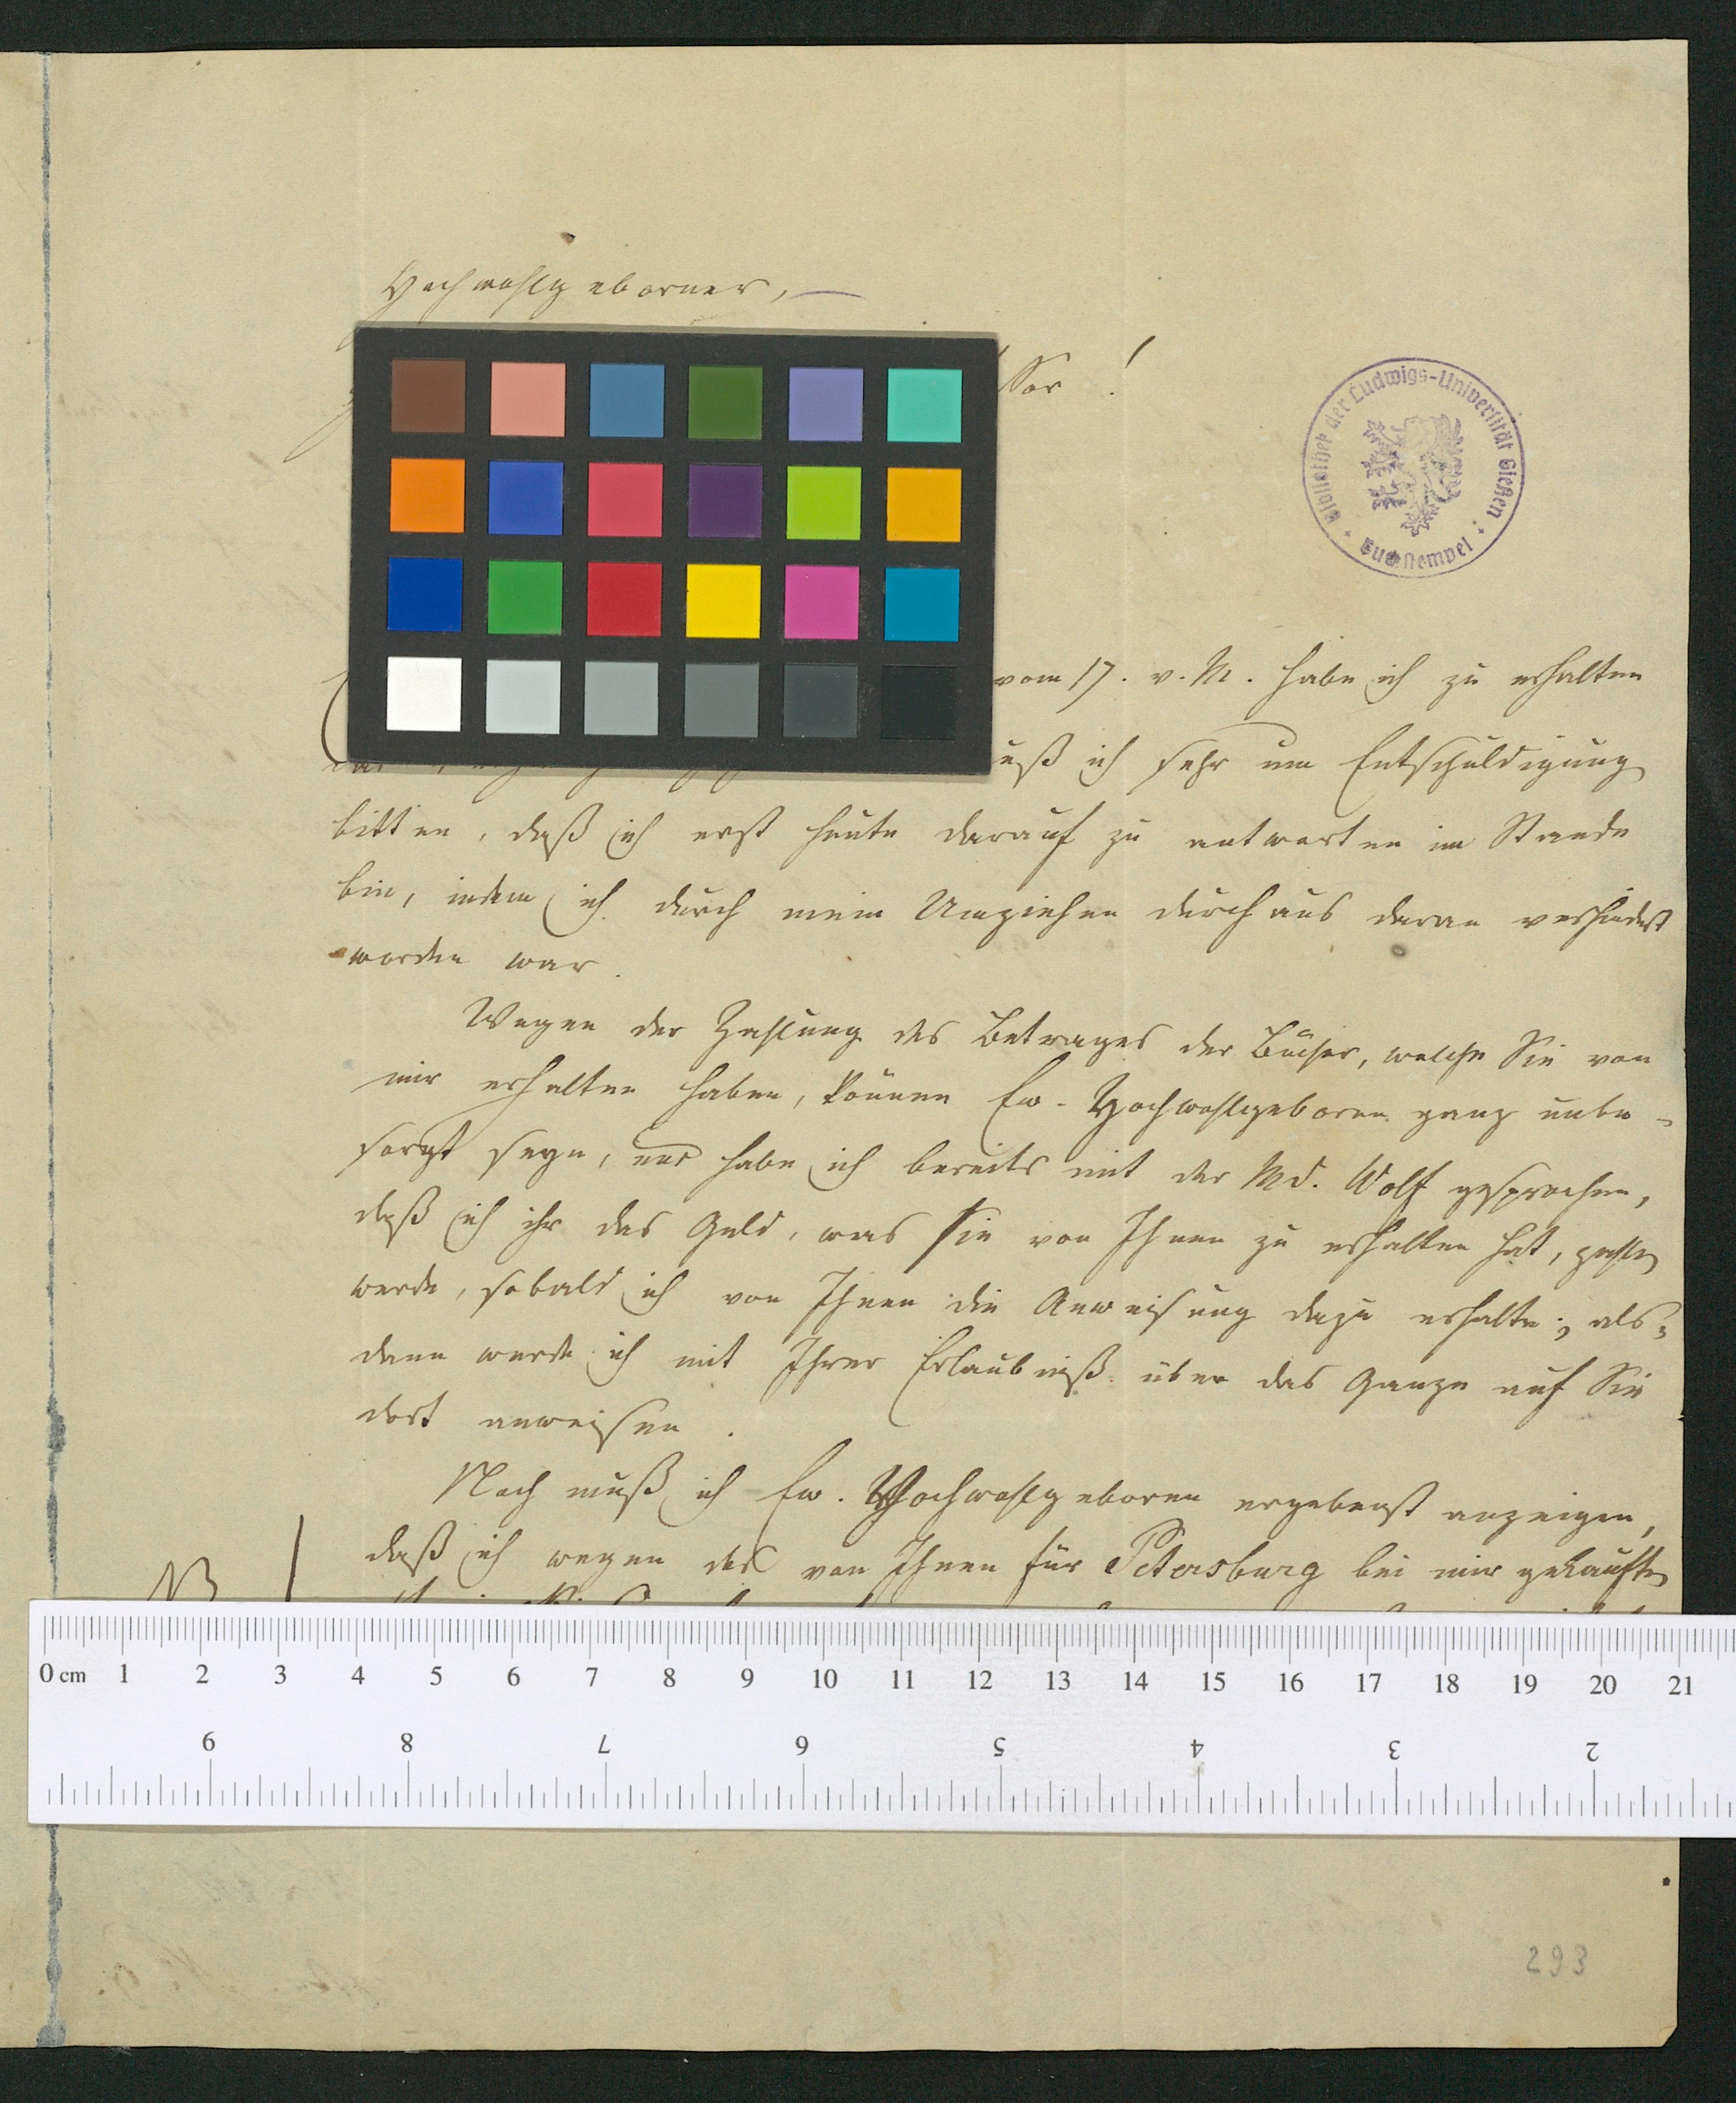 Hochwohlgeborner,
ssor !
Bibliothek der Ludwigs-Universität Gießen
Buchstempel
vom 17. v. M. habe ich zu erhalten
uß ich sehr um Entschuldigung
bitten, daß ich erst heute darauf zu antworten im Stande
bin, indem ich durch mein Umziehen durchaus daran verhindert
worden war.
Wegen der Zahlung des Betrages der Bücher, welche Sie von
mir erhalten haben, können Ew. Hochwohlgeboren ganz unbe-
sorgt seyn, habe ich bereits mit der Md. Wolf gesprochen,
daß ich ihr das Geld, was sie von Ihnen zu erhalten hat, zahlen
werde, sobald ich von Ihnen die Anweisung dazu erhalte; als-
dann werde ich mit Ihrer Erlaubniß über das Ganze auf Sie
dort anweisen.
Noch muß ich Ew. Hochwohlgeboren ergebenst anzeigen,
daß ich wegen des von Ihnen für Petersburg bei mir gekauften
NB
0 cm 1 2 3 4 5 6 7 8 9 10 11 12 13 14 15 16 17 18 19 20 21
9 8 7 6 5 4 3 2
293